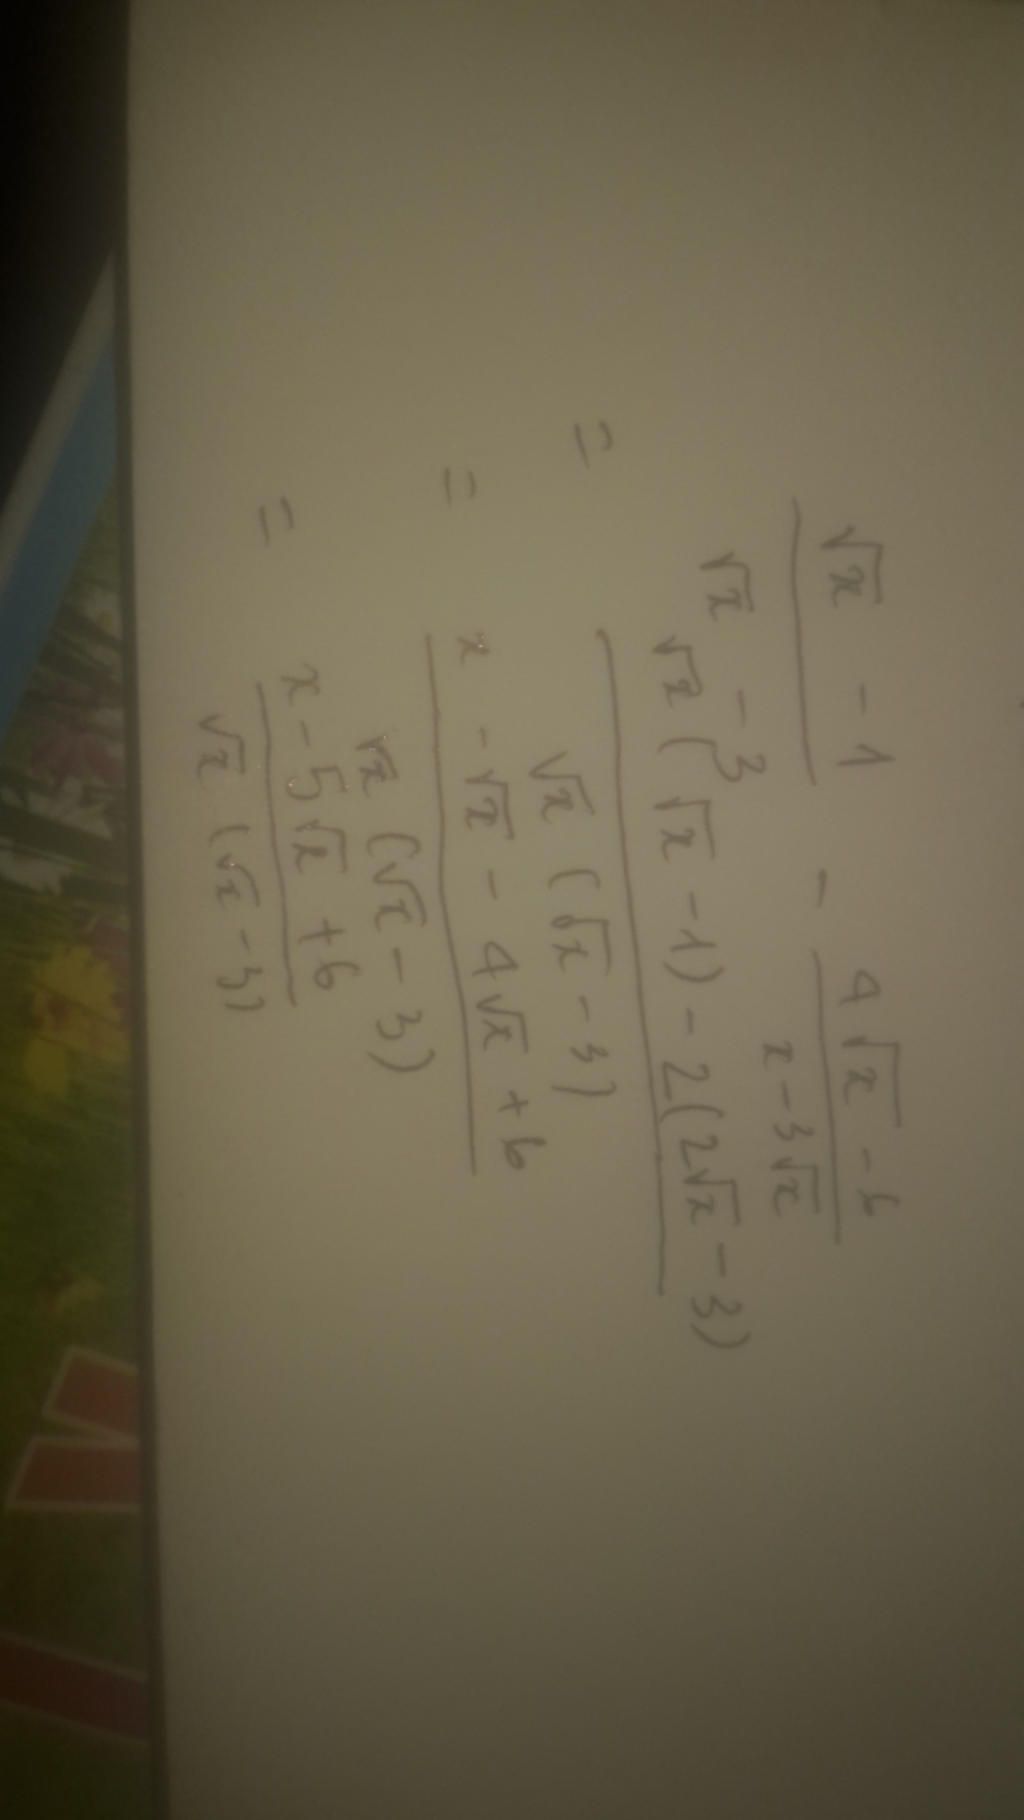 √x - 1 / √x - 3 - 4√x - 6 / x - 3√x
= √x (√x - 1) - 2(2√x - 3) / √x (√x - 3)
= x - √x - 4√x + 6 / √x (√x - 3)
= x - 5√x + 6 / √x (√x - 3)